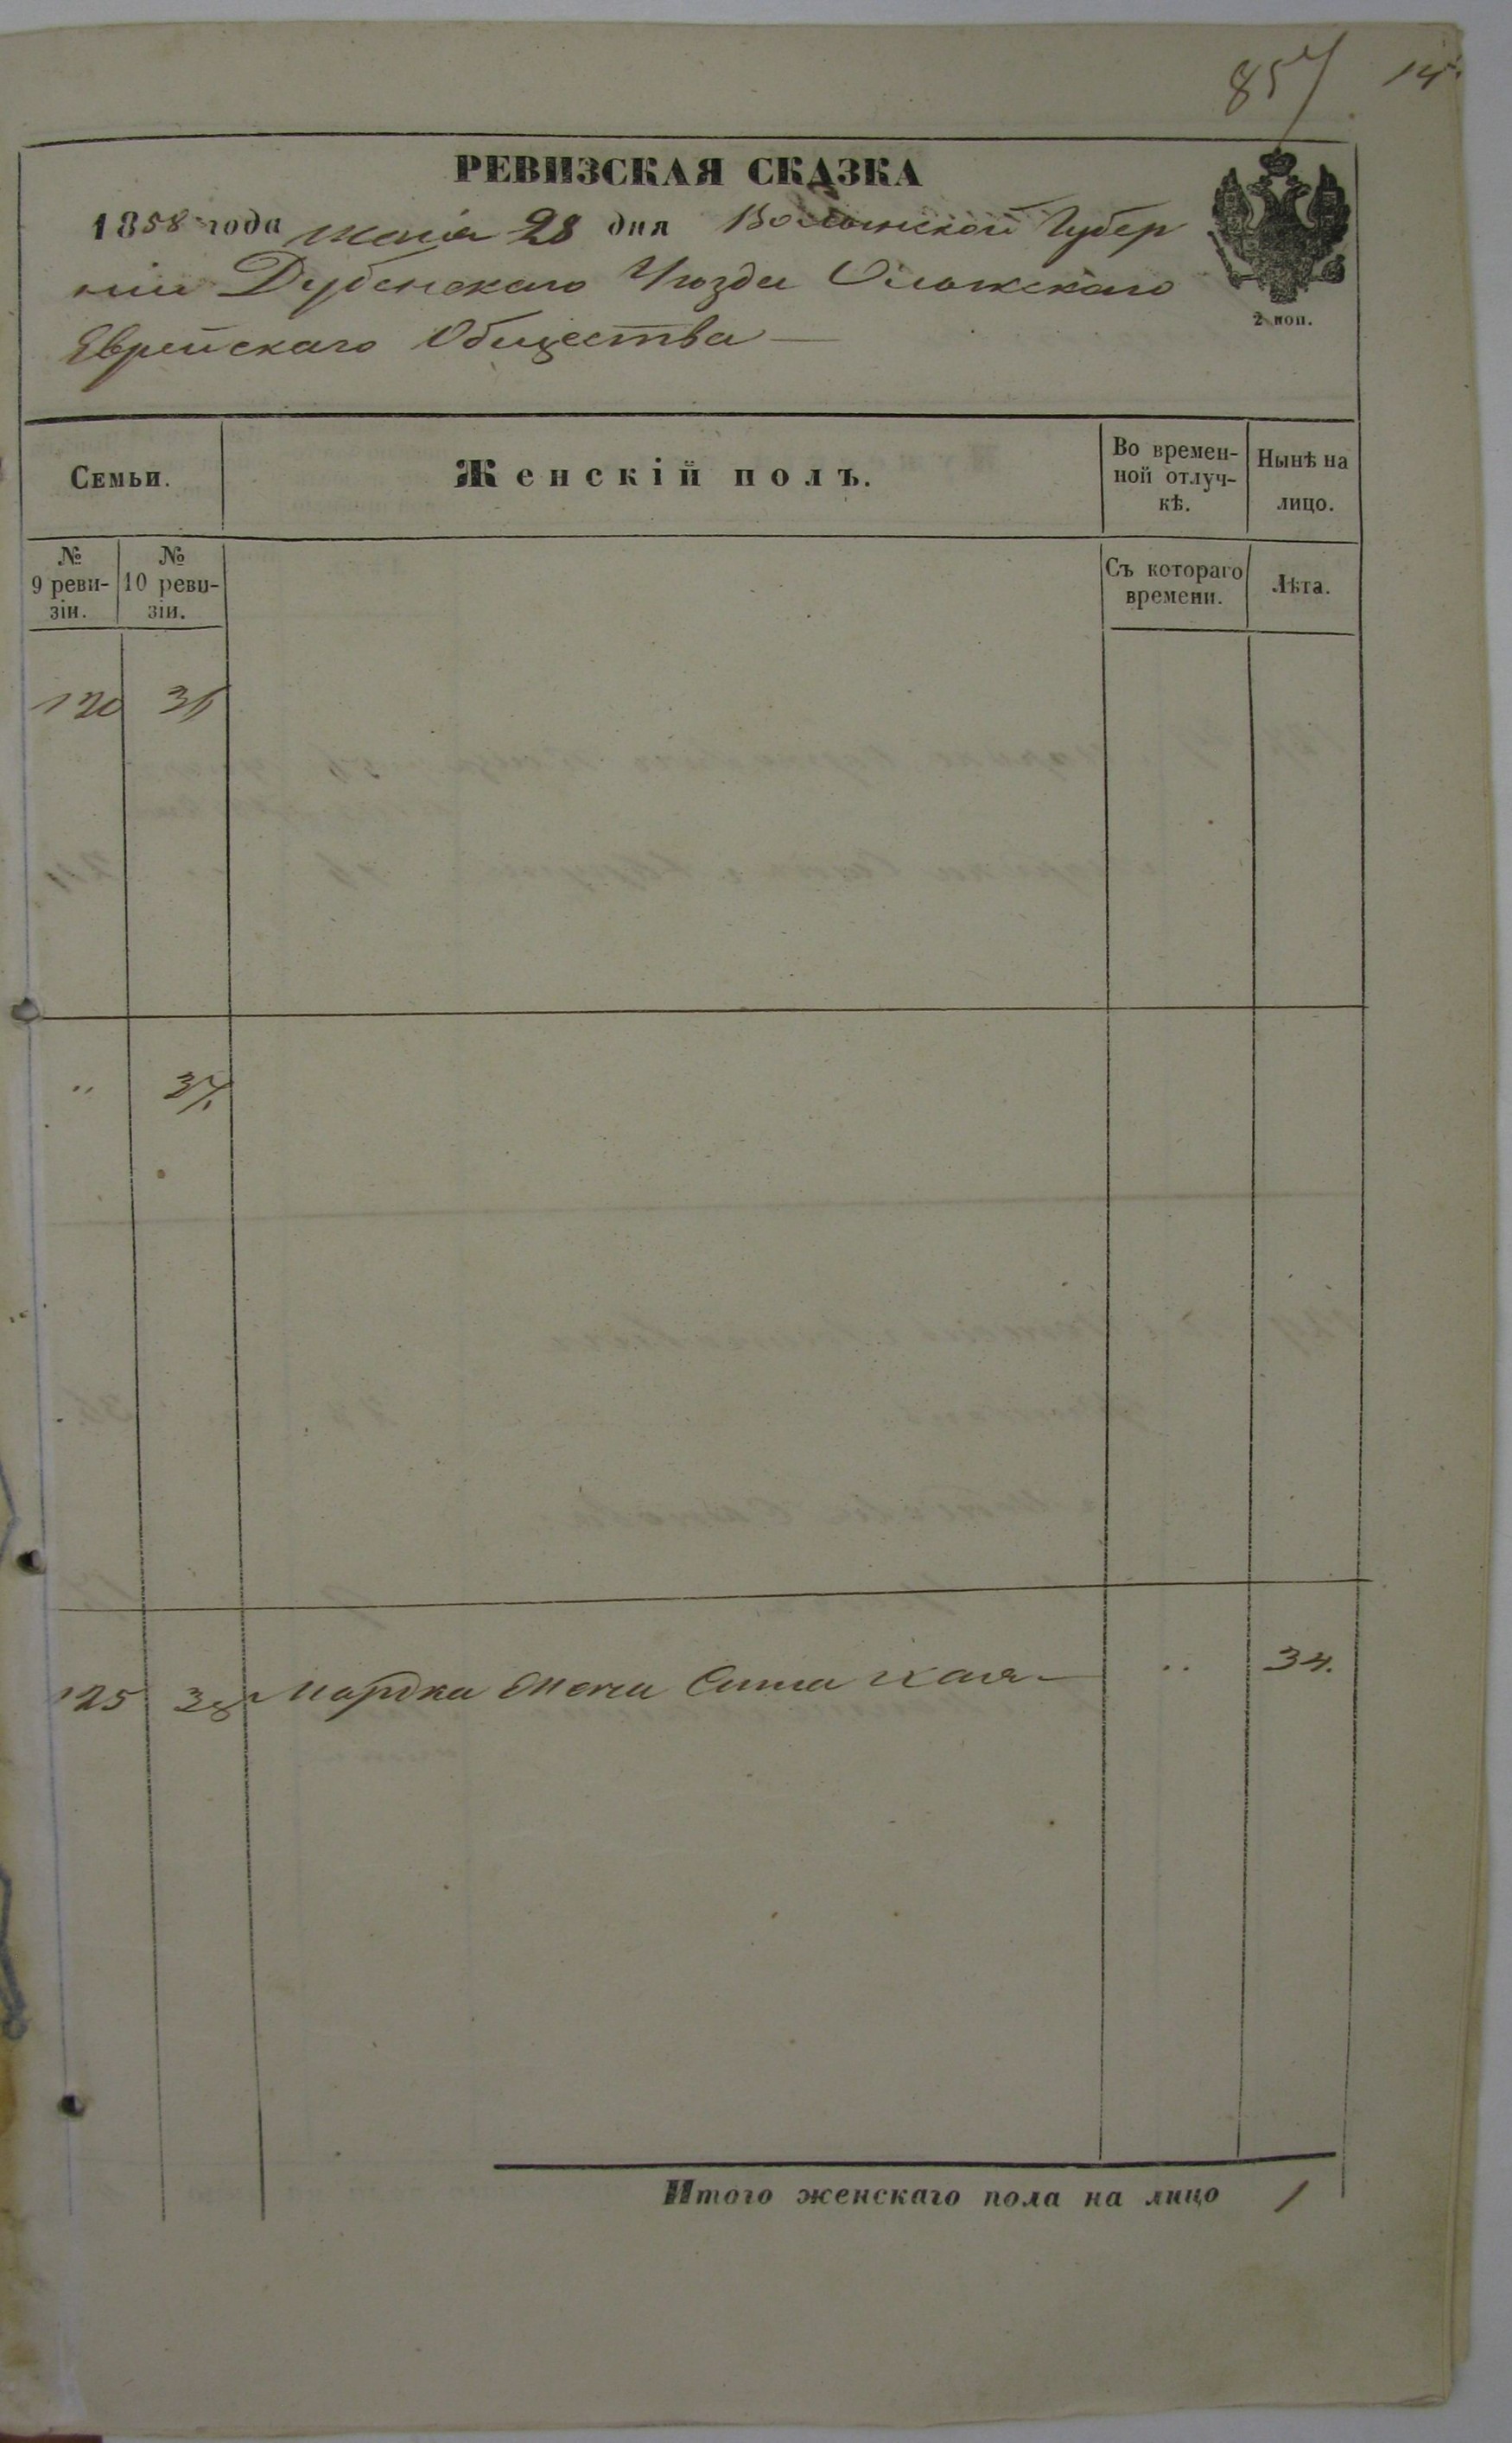 857 14
РЕВИЗСКАЯ СКАЗКА
1858 года маія 28 дня Волынской Губер
ніи Дубенскаго Уѣзда Олыкскаго
Еврейскаго Общества
2 коп.
Семьи.
Женскій полъ.
Во времен-
ной отлуч-
кѣ.
Нынѣ на
лицо.
№
9 реви-
зіи.
№
10 реви-
зіи.
Съ котораго
времени.
Лѣта.
120
„ 37
125 38 Мордка жена Сима Хая „ 34.
Итого женскаго пола на лицо 1